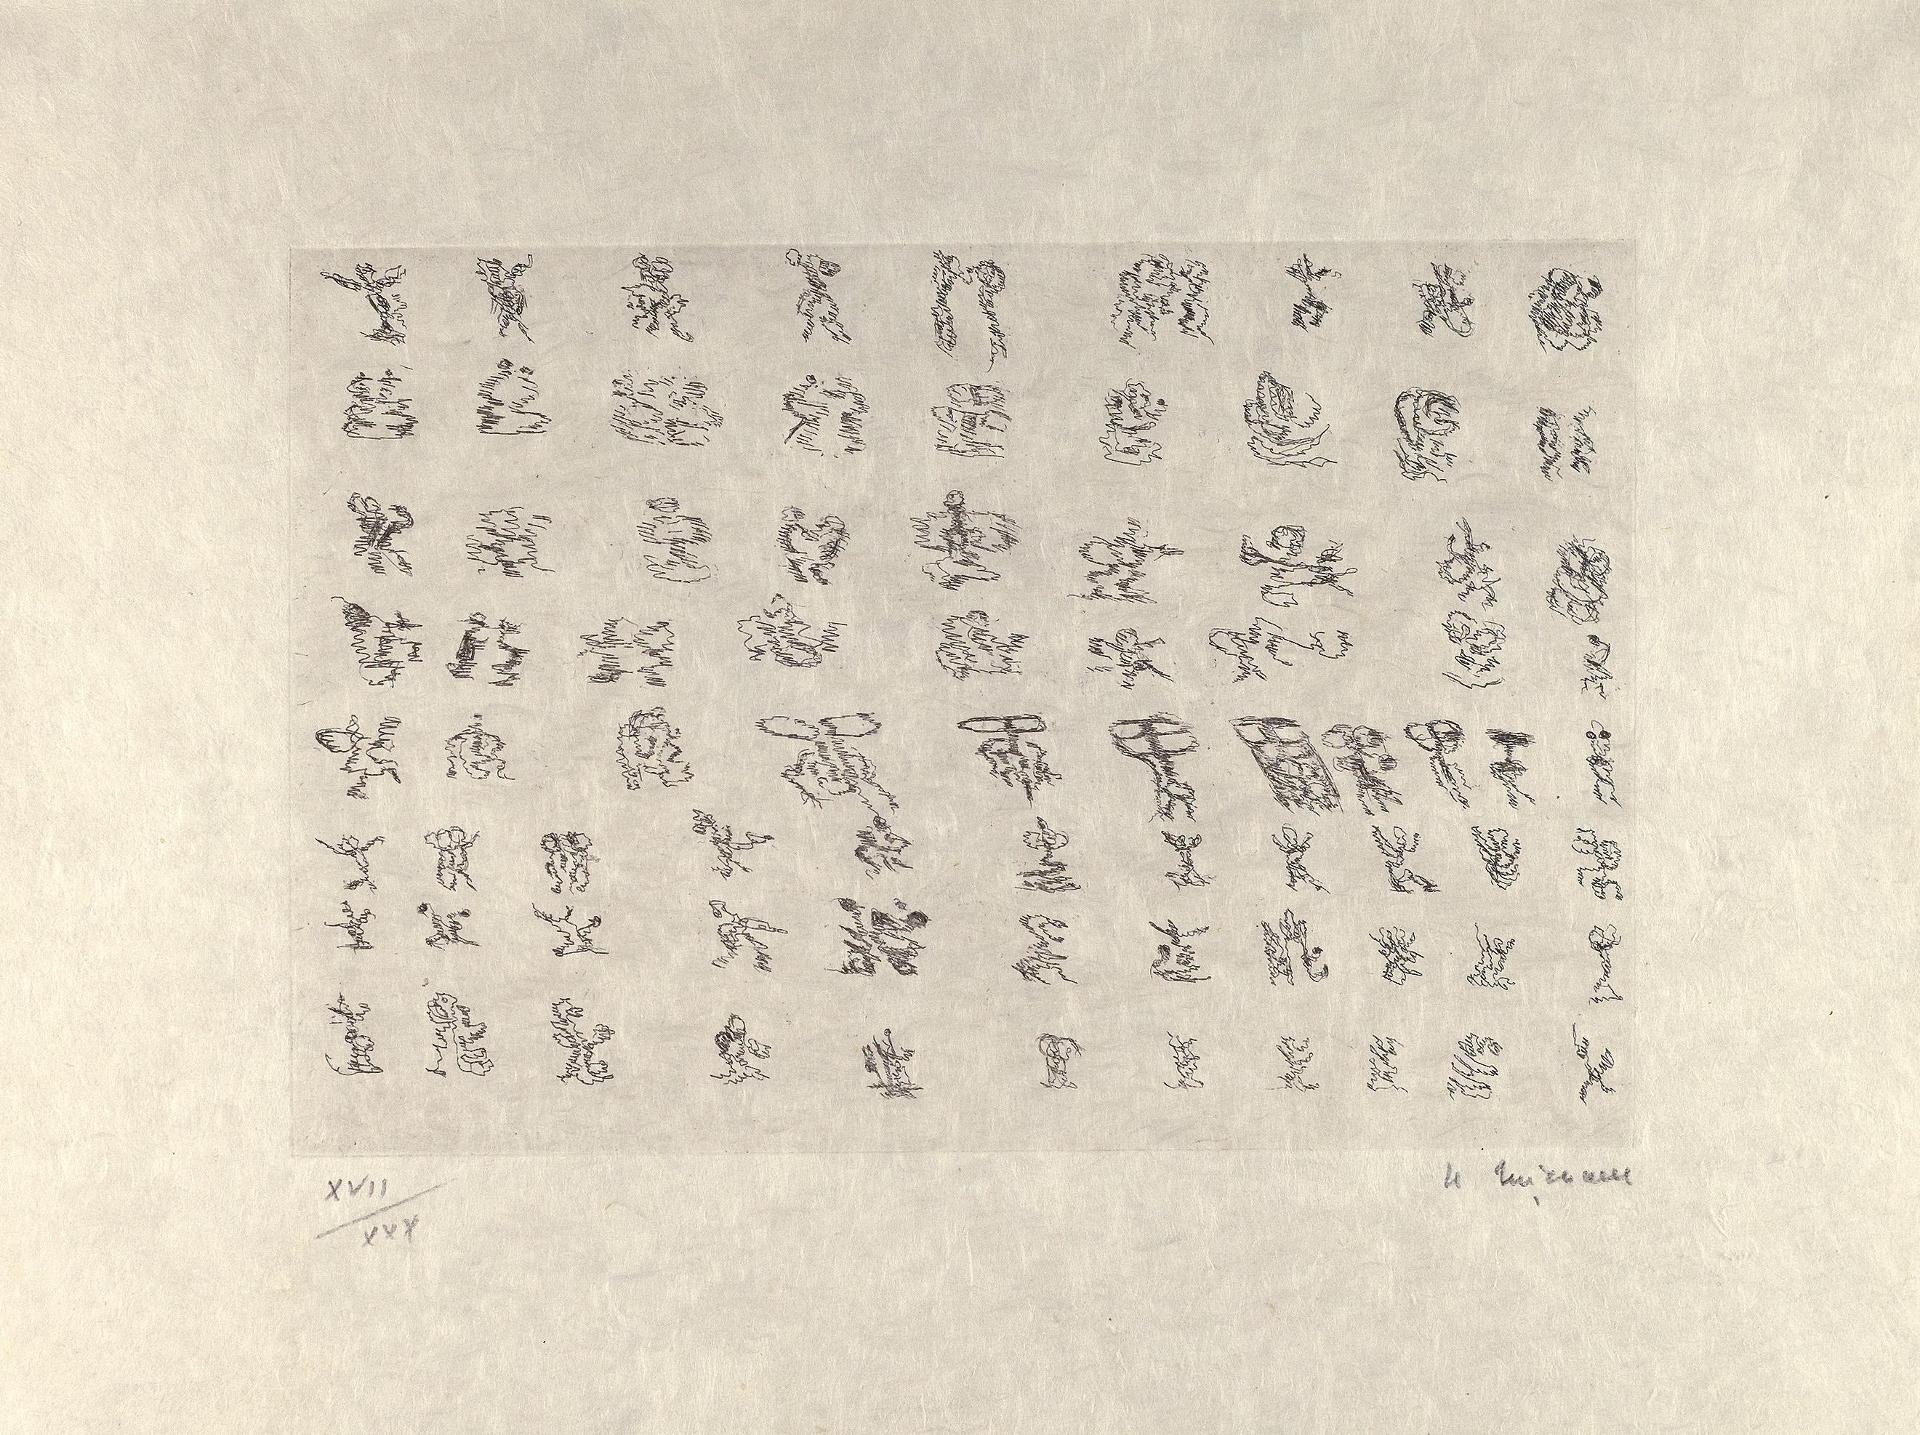 XVII
XXX
H Michaux